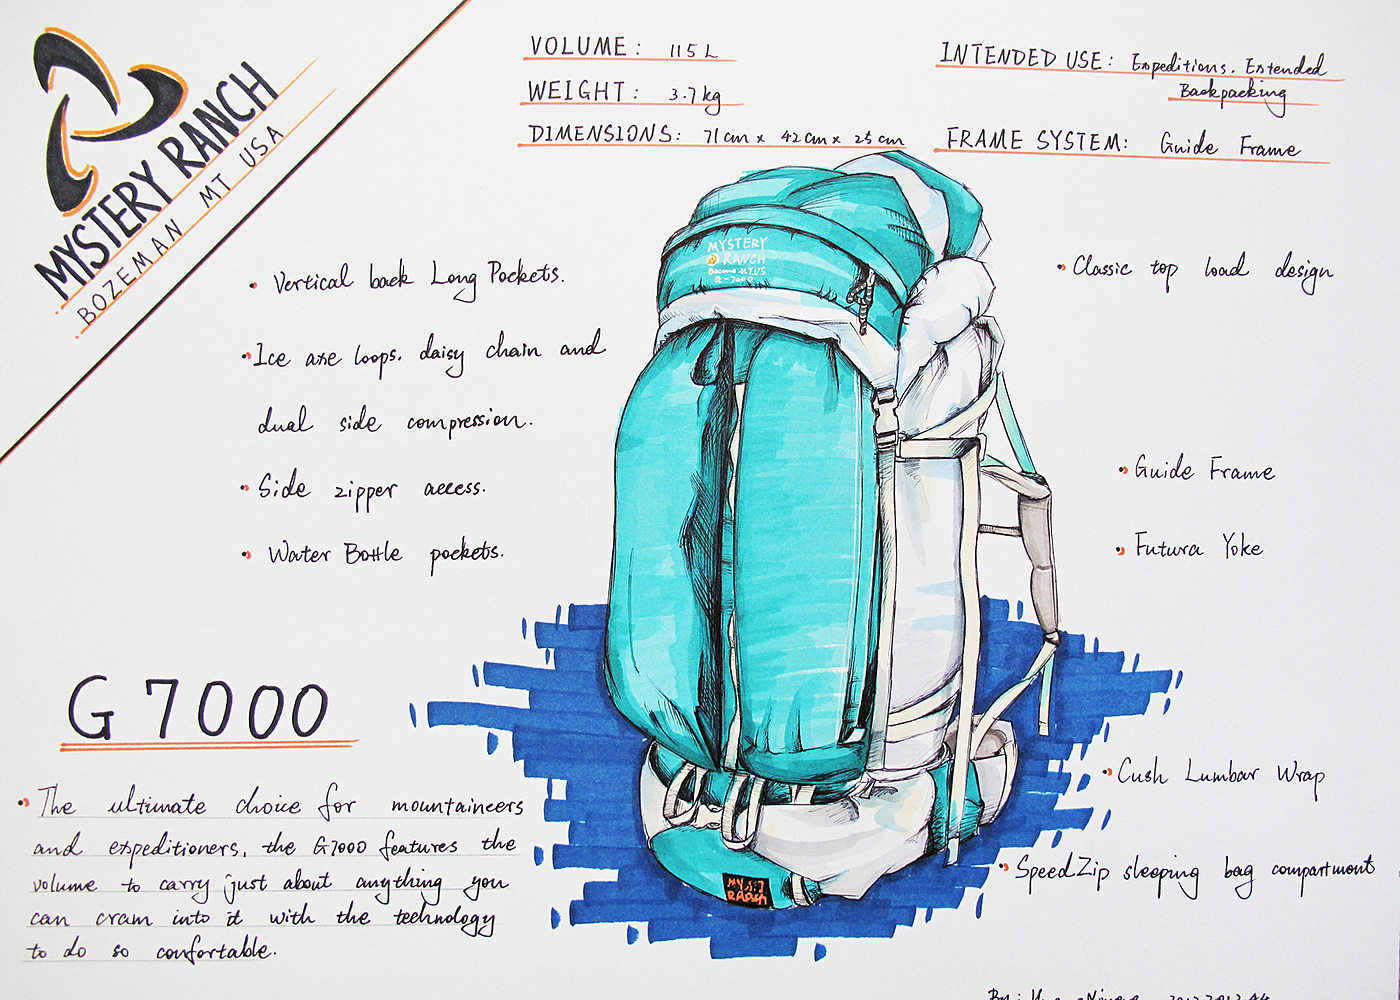 MYSTERY RANCH
BOZEMAN MT USA
VOLUME: 115 L
WEIGHT: 3.7 kg
DIMENSIONS: 71 cm x 42 cm x 25 cm
INTENDED USE: Expeditions. Extended
Backpacking
FRAME SYSTEM: Guide Frame
MYSTERY
RANCH
• Vertical back Long Pockets.
• Ice axe loops. daisy chain and
dual side compression.
• Side zipper access.
• Water Bottle pockets.
• Classic top load design
• Guide Frame
• Futura Yoke
• Cush Lumbar Wrap
• SpeedZip sleeping bag compartment
G 7000
• The ultimate choice for mountaineers
and expeditioners, the G7000 features the
volume to carry just about anything you
can cram into it with the technology
to do so comfortable.
RANCH
By: